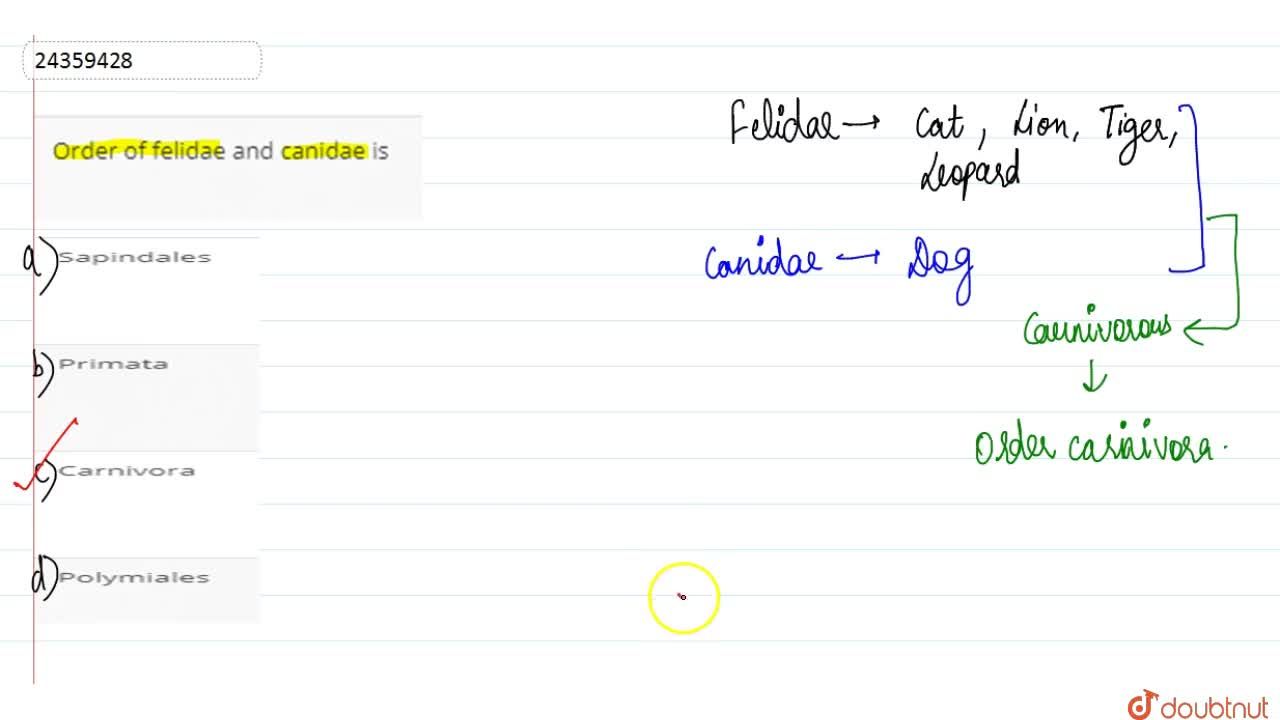 24359428
Order of felidae and canidae is
a) Sapindales
b) Primata
c) Carnivora
d) Polymiales
Felidae → Cat, Lion, Tiger,
Leopard
Canidae → Dog
Carnivorous
↓
Order carnivora.
doubtnut